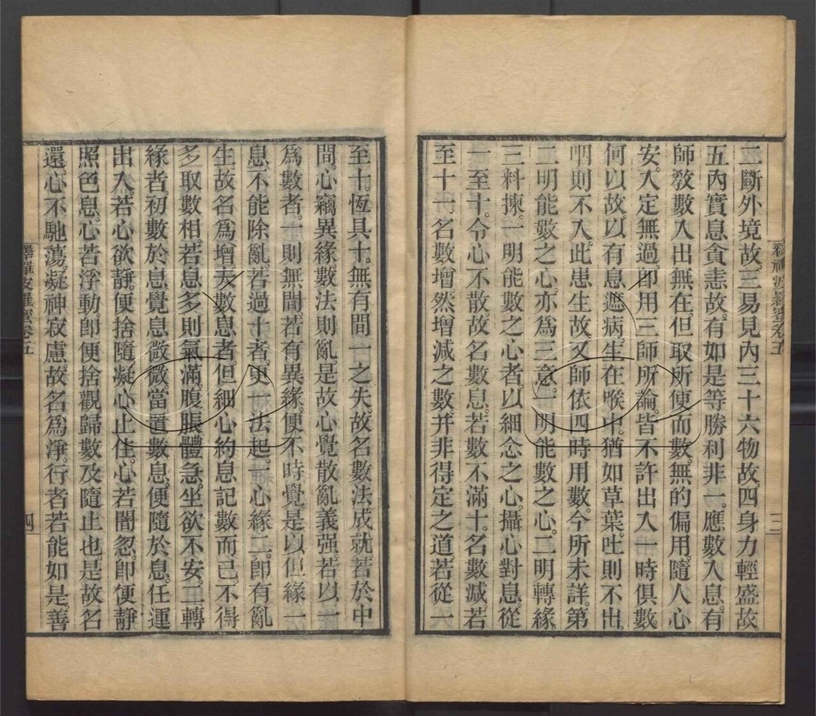 二斷外境故。三易見內三十六物故。四身力輕盛故
五內實息貪恚故。有如是等勝利非一。應數入息。有
師敎數入出無在。但取所便而數。無的偏用。隨人心
安。入定無過。卽用三師所論。皆不許出入一時俱數
何以故。以有息遮病。生在喉中。猶如草葉。吐則不出。
咽則不入。此患生故。又師依四時用數。今所未詳。第
二明能數之心。亦爲三意。一明能數之心。二明轉緣
三料揀。一明能數之心者。以細念之心。攝心對息。從
一至十。令心不散。故名數息。若數不滿十。名數減。若
至十一。名數增。然增減之數。幷非得定之道。若從一
至十。恆具十。無有間一之失。故名數法成就。若於中
間心竊異緣。數法則亂。是故心覺散亂義强。若以一
爲數者。一則無間。若有異緣。便不時覺。是以但緣一
息。不能除亂。若過十者。更一法起。一心緣二。卽有亂
生。故名爲增。夫數息者。但細心約息記數而已。不得
多取數相。若息多。則氣滿腹脹。體急。坐欲不安。二轉
緣者。初數於息。覺息微微。當置數息。便隨於息。任運
出入。若心欲靜。便捨隨凝心止住。心若闇忽。卽便靜
照色息。心若浮動。卽便捨觀歸數。及隨止也。是故名
還。心不馳蕩。凝神寂慮。故名爲淨。行者若能如是善